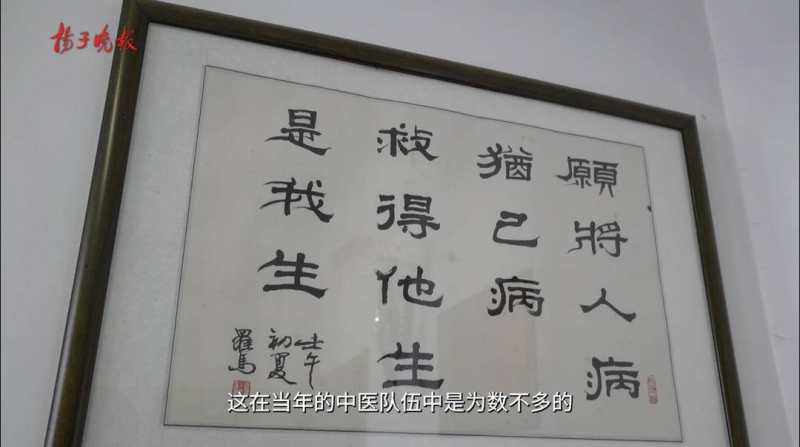 扬子晚报
願將人病
猶己病
救得他生
是我生
壬午
初夏
羅馬
这在当年的中医队伍中是为数不多的